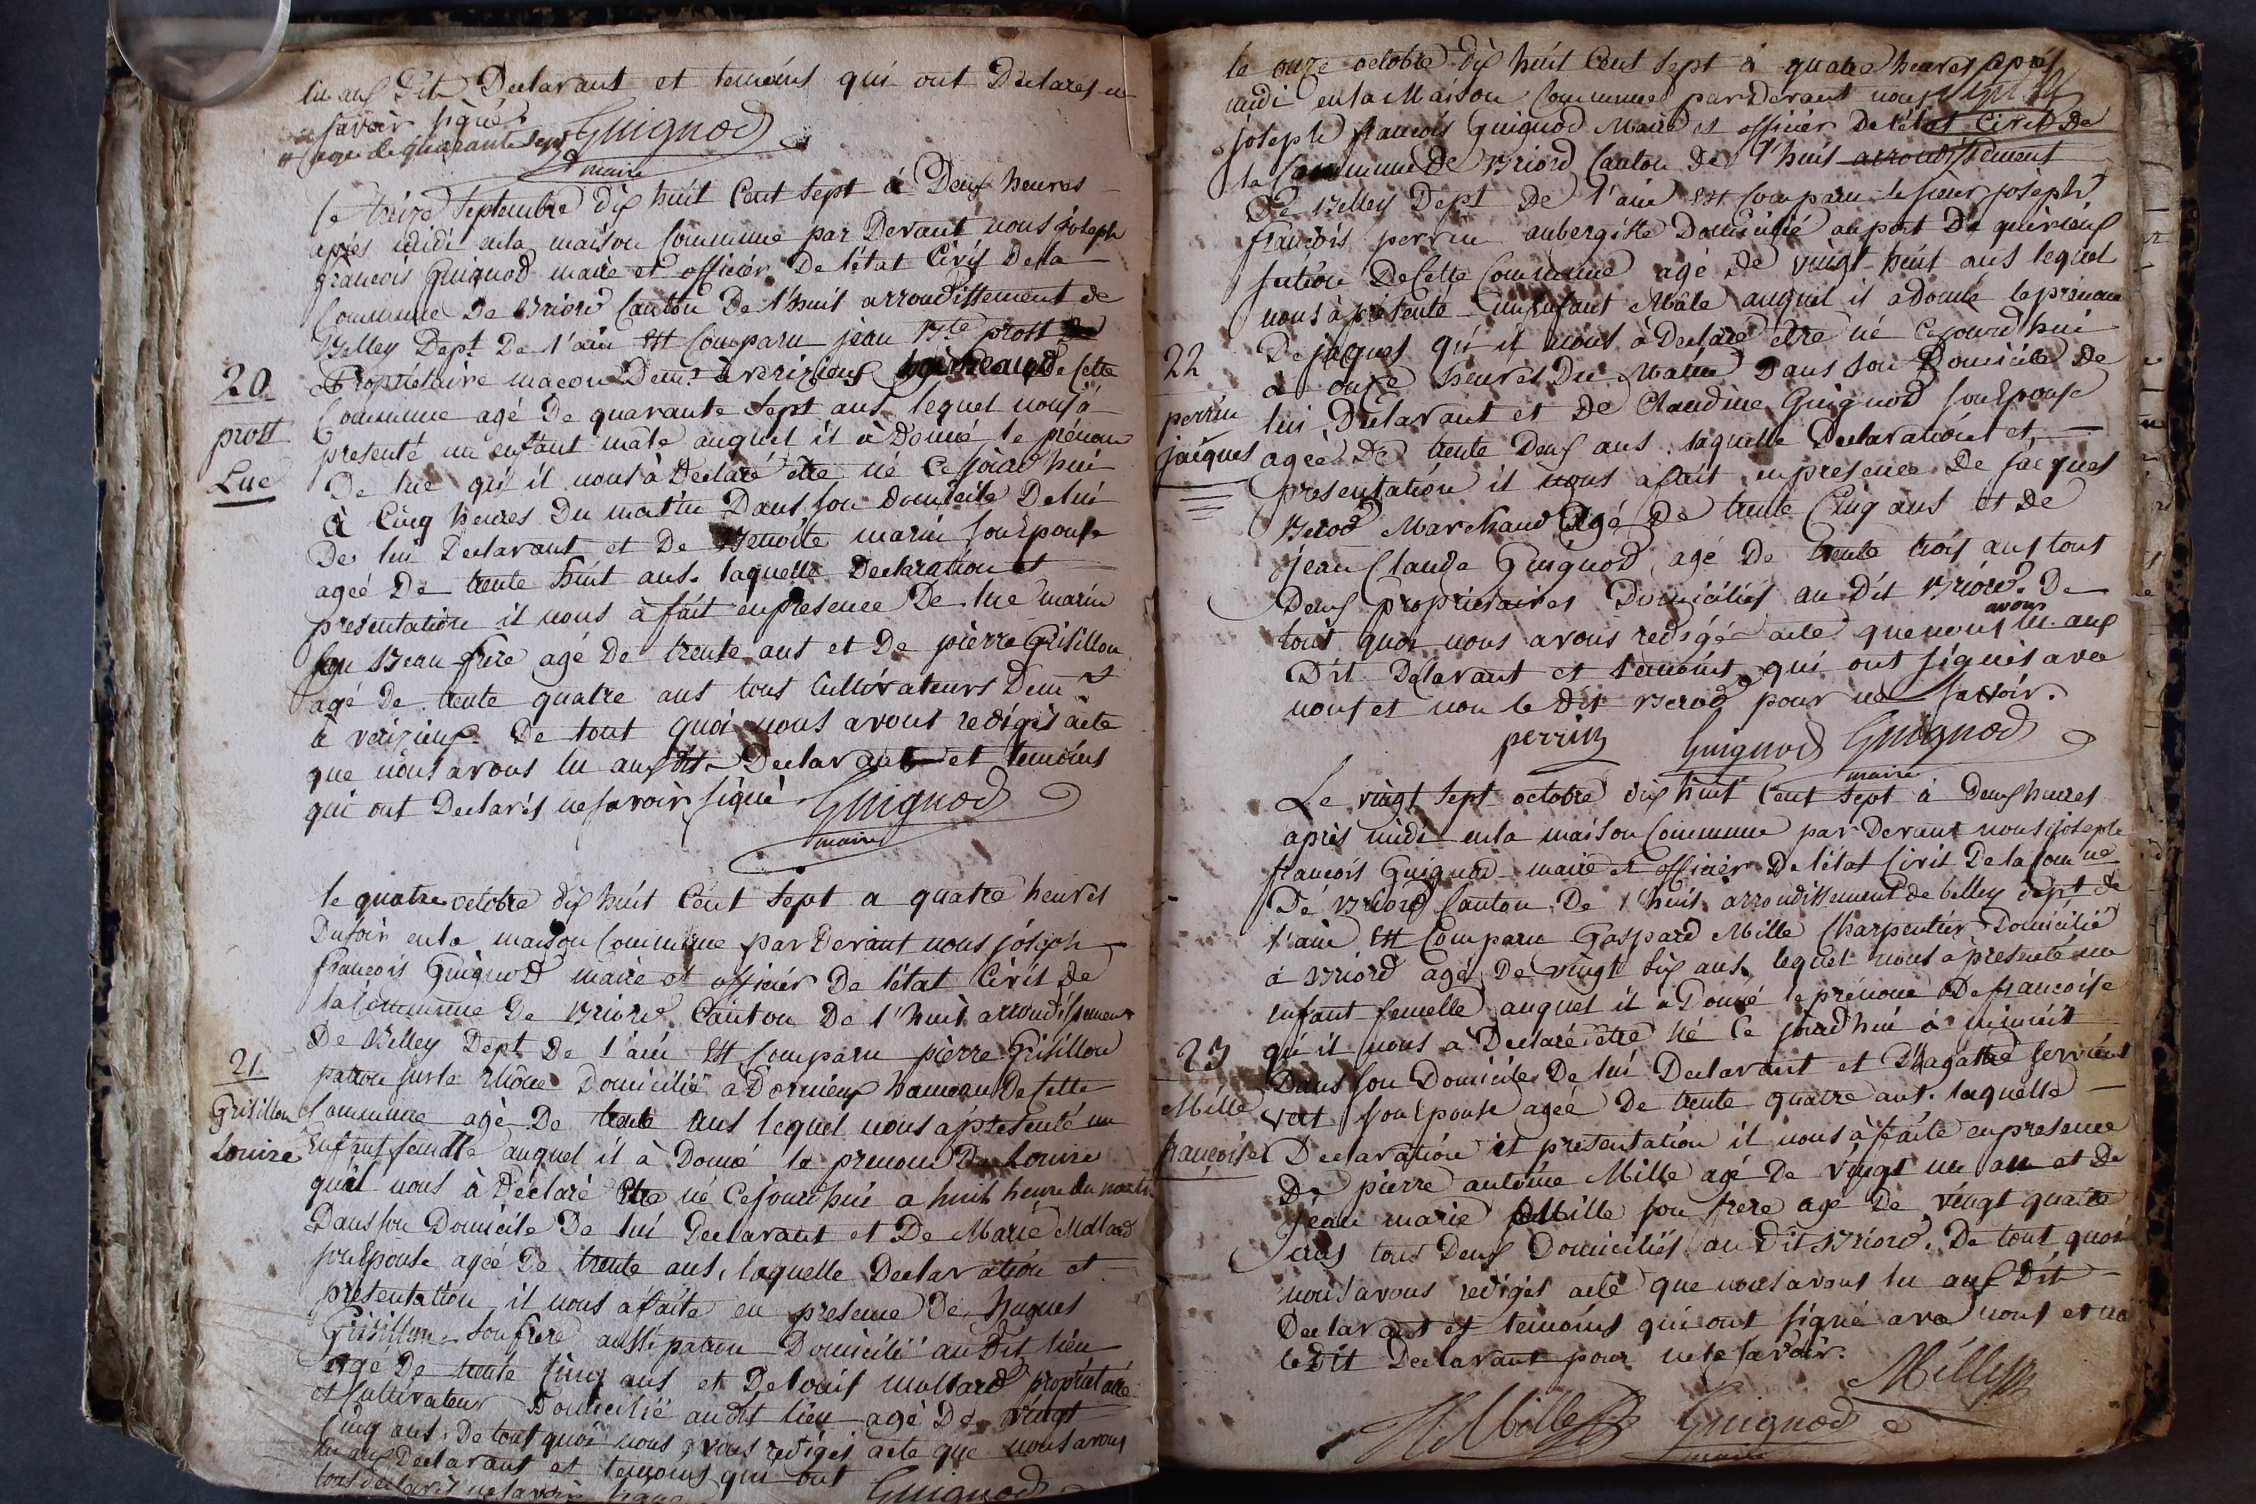 lu aux dit Declarant et temoins qui ont Declarés ne
savoir signé
agé de quarante sept Guignod
maire
Le treize Septembre dix huit Cent Sept à Deux heures
après midi enla maison Commune par Devant nous joseph
francois Guignod maire et officier De létat Civil Dela
Commune De Briord Canton De l'huis arrondissement de
Belley Dept De l'ain Est Comparu jean Bte prost
20
Propriétaire macon Demt à verizieux de Cette
Commune agé De quarante Sept ans lequel nous à
prost
presenté un enfant mâle auquel il à Donné le prénom
Luc
De luc qu'il nous à Declaré être né Cejourdhui
à Cinq heures Du matin Dans son domicile De lui
De lui Declarant et De Benoite marin Son Epouse
ageé De trente huit ans. laquelle Declaration et
presentation il nous à fait enpresence De luc marin
Son Beau frère agé De trente ans et De pierre Grisillon
agé De trente quatre ans tous Cultivateurs Demts
à verizieux. De tout quoi nous avons redigés acte
que nous avons lu aux dit Declarant et temoins
qui ont Declarés ne Savoir Signé Guignod
maire
le quatre octobre dix huit Cent Sept a quatre heures
Dusoir enla maison Commune par Devant nous jóseph
francois Guignod maire et officier De létat Civil de
la Commune De Briord Canton De l'huis arrondissement
De Belley Dept De l'ain Est Comparu pierre Grisillon
21
patron surle Rhône Domicilié à Dornieux hameau De cette
Grisillon
Commune agé De trente ans lequel nous à présenté un
Louise
Enfant femelle auquel il à Donné le prenom De Louise
quil nous à Déclaré Etre né Cejourdhui a huit heure du matin
Dans son Domicile De lui Declarant et De Marie Mollard
Son Epouse ageé De trente ans, laquelle Declaration et
presentation il nous a faite en presence De hugues
Grisillon Son frere aussi patron Domicilié au Dit lieu
agé De trente Cinq ans et De louis mollard propriétaire
et Cultivateur Domicilié audit lieu agé De vingt
Cinq ans. De tout quoi nous avons redigés acte que nous avons
lu aux Declarant et temoins qui ont
tous declarés ne savoir signé Guignod
le onze octobre dix huit Cent Sept à quatre heures après
midi enla Maison Commune par Devant nous
joseph francois Guignod Maire et officier De létat Civil De
la Commune De Briord Canton De l'huis arrondissement
De Belley Dept De l'ain Est Comparu le sieur joseph
francois perrin aubergiste Domicilié auport De quirieux
section De Cette Commune agé de vingt huit ans lequel
nous à présenté un Enfant Mâle auquel il a donné le prénom
22
De jaques qu'il nous à Declaré etre né Cejourd'hui
a onze heures Du Matin Dans Son Domicile De
perrin
lui Declarant et De Claudine Guignod Son Epouse
jacques
ageé De trente Deux ans. laquelle Declaration et
presentation il nous a fait enpresence De jacques
Berod Marchand agé De trente Cinq ans et De
jean Claude Guignod agé De trente trois ans tous
Deux proprietaires Domiciliés au Dit Briord. De
tout quoi nous avons redigé acte que nous avons lu aux
Dit Declarant et temoins qui ont signés avec
nous et non le Dit Berod pour ne savoir.
perrin Guignod Guignod
maire
Le vingt Sept octobre dix huit Cent Sept à Deux heures
après midi enla maison Commune par Devant nous joseph
francois Guignod maire et officier De létat Civil De la Comne
De Briord Canton De l'huis arrondissement de belley dept de
l'ain Est Comparu Gaspard Mille Charpentier Domicilié
à Briord agé De vingt Six ans lequel nous à presenté un
Enfant femelle auquel il à Donné le prénom De francoise
23
qu'il nous à Declaré être né Ce jourdhui à minuit
Dans son Domicile De lui Declarant et D'agathe
Mille
Son Epouse ageé De trente quatre ans. laquelle
francoise
Declaration et presentation il nous à faite enpresence
De pierre antoine Mille agé De vingt un an et De
jean marie Mille son frere agé De vingt quatre
ans tous Deux Domiciliés au Dit Briord. De tout quoi
nous avons redigés acte que nous avons lu aux Dit
Declarant et temoins qui ont signé avec nous et no
le Dit Declarant pour ne le savoir.
Mille
Mille Guignod
maire